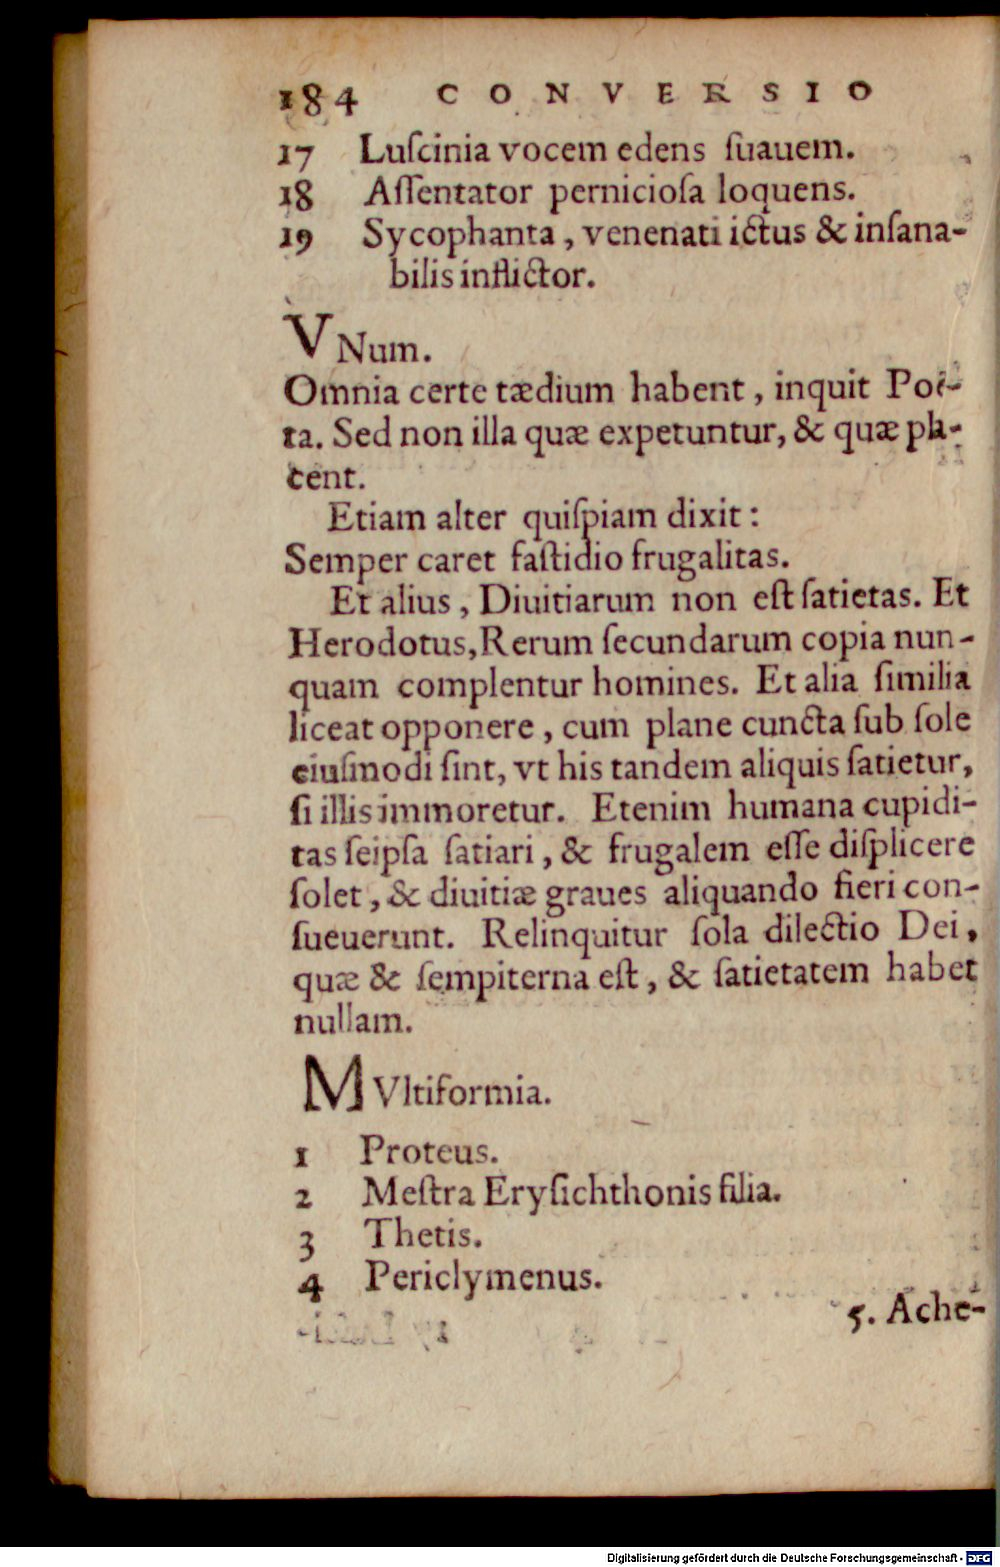 184 CONVERSIO
17 Luſcinia vocem edens ſuauem.
18 Aſſentator pernicioſa loquens.
19 Sycophanta, venenati ictus & inſana-
bilis inflictor.
VNum.
Omnia certe tædium habent, inquit Poë-
ta. Sed non illa quæ expetuntur, & quæ pla-
cent.
Etiam alter quiſpiam dixit:
Semper caret faſtidio frugalitas.
Et alius, Diuitiarum non eſt ſatietas. Et
Herodotus, Rerum ſecundarum copia nun-
quam complentur homines. Et alia ſimilia
liceat opponere, cum plane cuncta ſub ſole
eiuſmodi ſint, vt his tandem aliquis ſatietur,
ſi illis immoretur. Etenim humana cupidi-
tas ſeipſa ſatiari, & frugalem eſſe diſplicere
ſolet, & diuitiæ graues aliquando fieri con-
ſueuerunt. Relinquitur ſola dilectio Dei,
quæ & ſempiterna eſt, & ſatietatem habet
nullam.
MVltiformia.
1 Proteus.
2 Meſtra Eryſichthonis filia.
3 Thetis.
4 Periclymenus.
5. Ache-
Digitalisierung gefördert durch die Deutsche Forschungsgemeinschaft - DFG